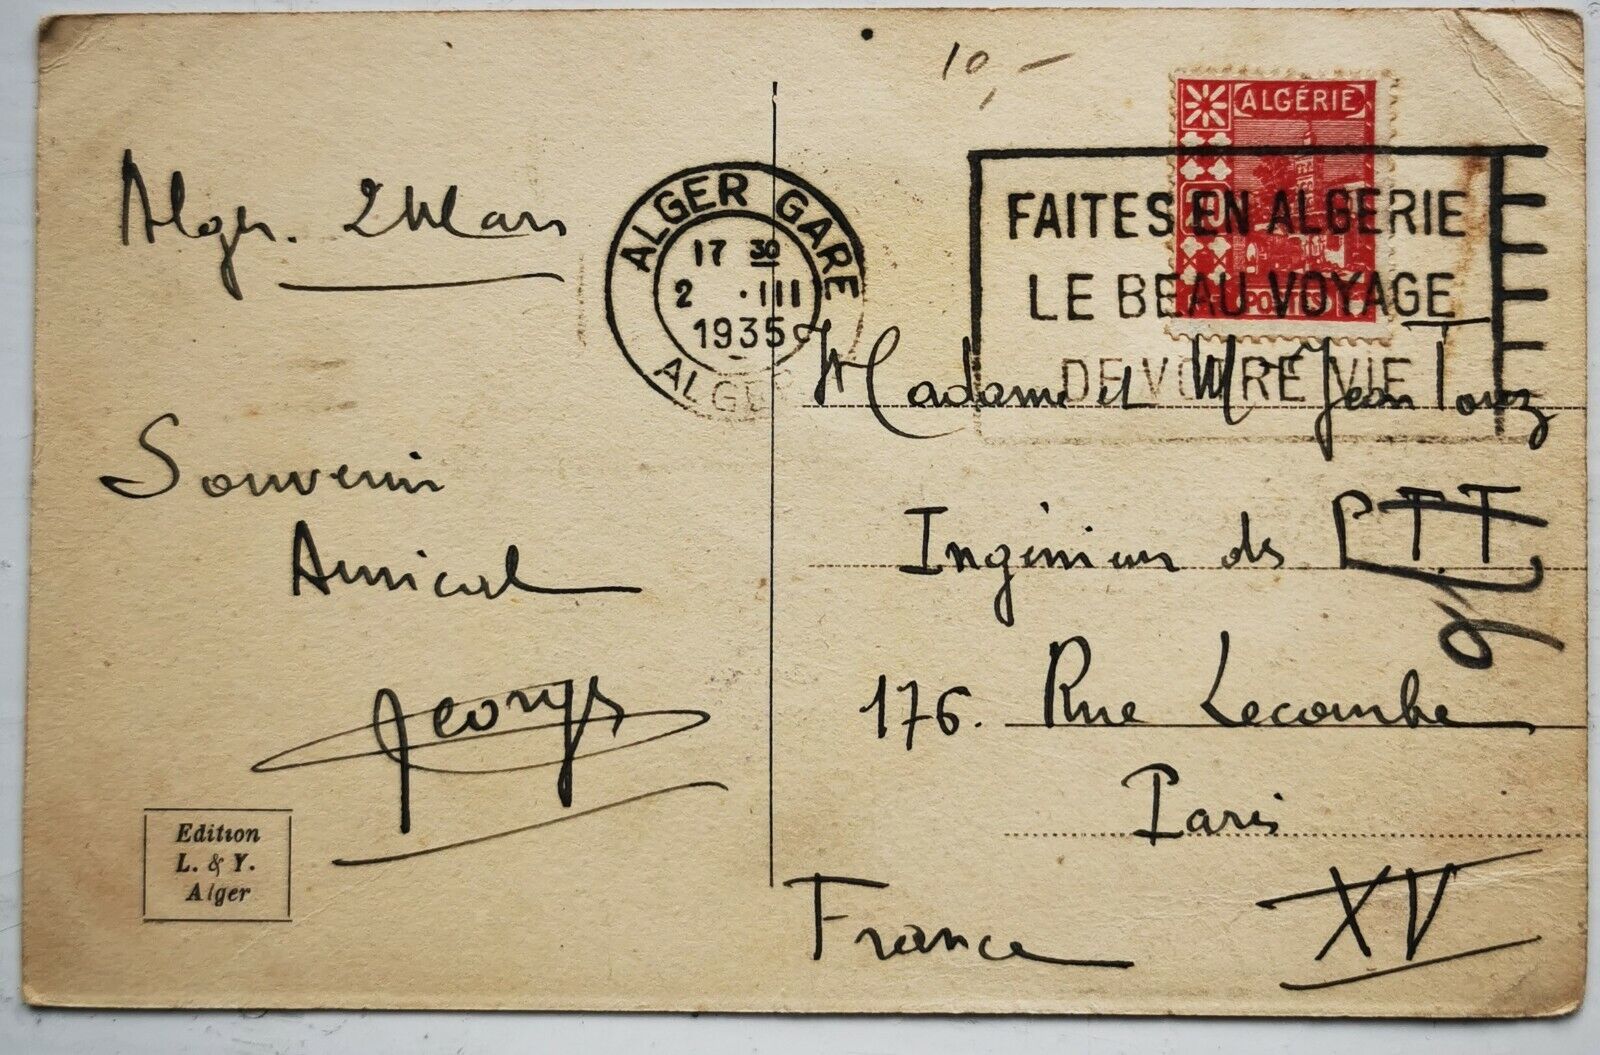 10,-
ALGÉRIE
POSTES
ALGER GARE
17 30
2 . III
1935
ALGER
FAITES EN ALGERIE
LE BEAU VOYAGE
DE VOTRE VIE
Alger. 2 Mars
Souvenir
Amical
Georges
Edition
L. & Y.
Alger
Madame et M. Jean
Ingénieur des P.T.T
176. Rue Lecombe
Paris
XV
France